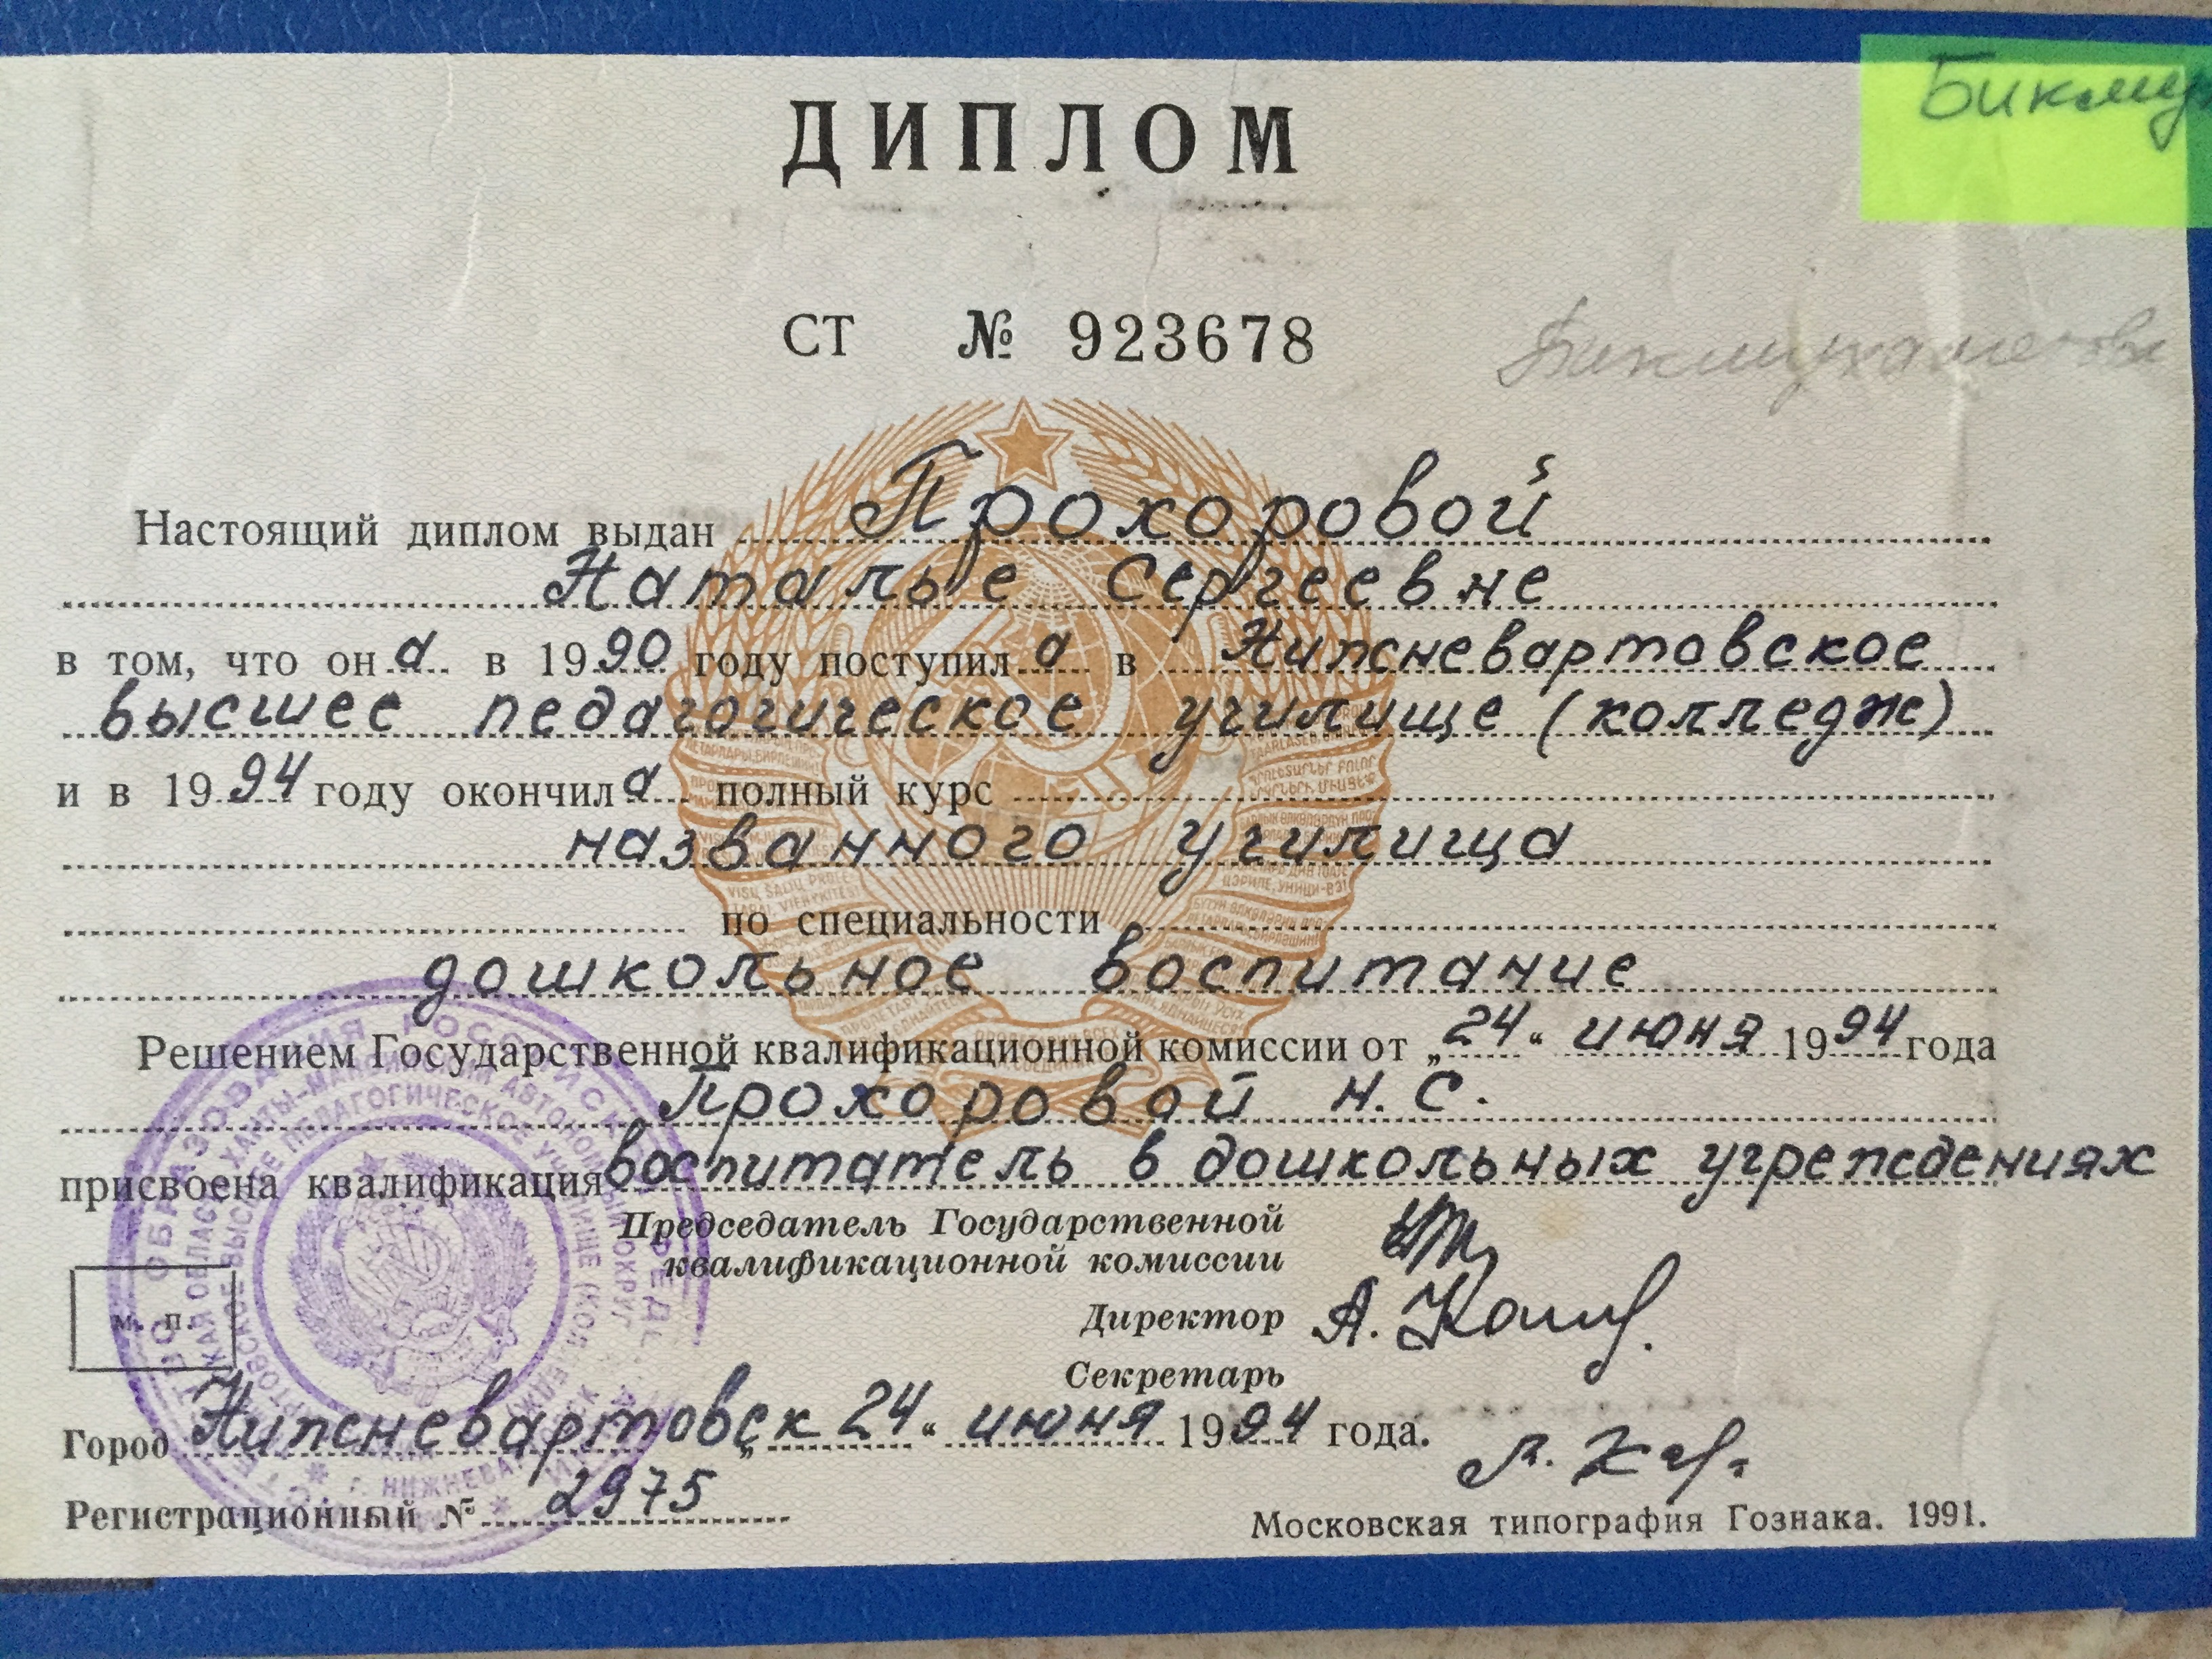 Бикму
ДИПЛОМ
СТ № 923678
Бикмухаметова
Настоящий диплом выдан Прохоровой
Наталье Сергеевне
в том, что она в 1990 году поступила в Нижневартовское
высшее педагогическое училище (колледж)
и в 1994 году окончила полный курс
названного училища
по специальности
дошкольное воспитание
Решением Государственной квалификационной комиссии от „24“ июня 1994 года
Прохоровой Н.С.
присвоена квалификация воспитатель в дошкольных учреждениях
Председатель Государственной
квалификационной комиссии
Директор А.
М. П.
Секретарь
Город Нижневартовск „24“ июня 1994 года.
Регистрационный № 2975
Московская типография Гознака. 1991.